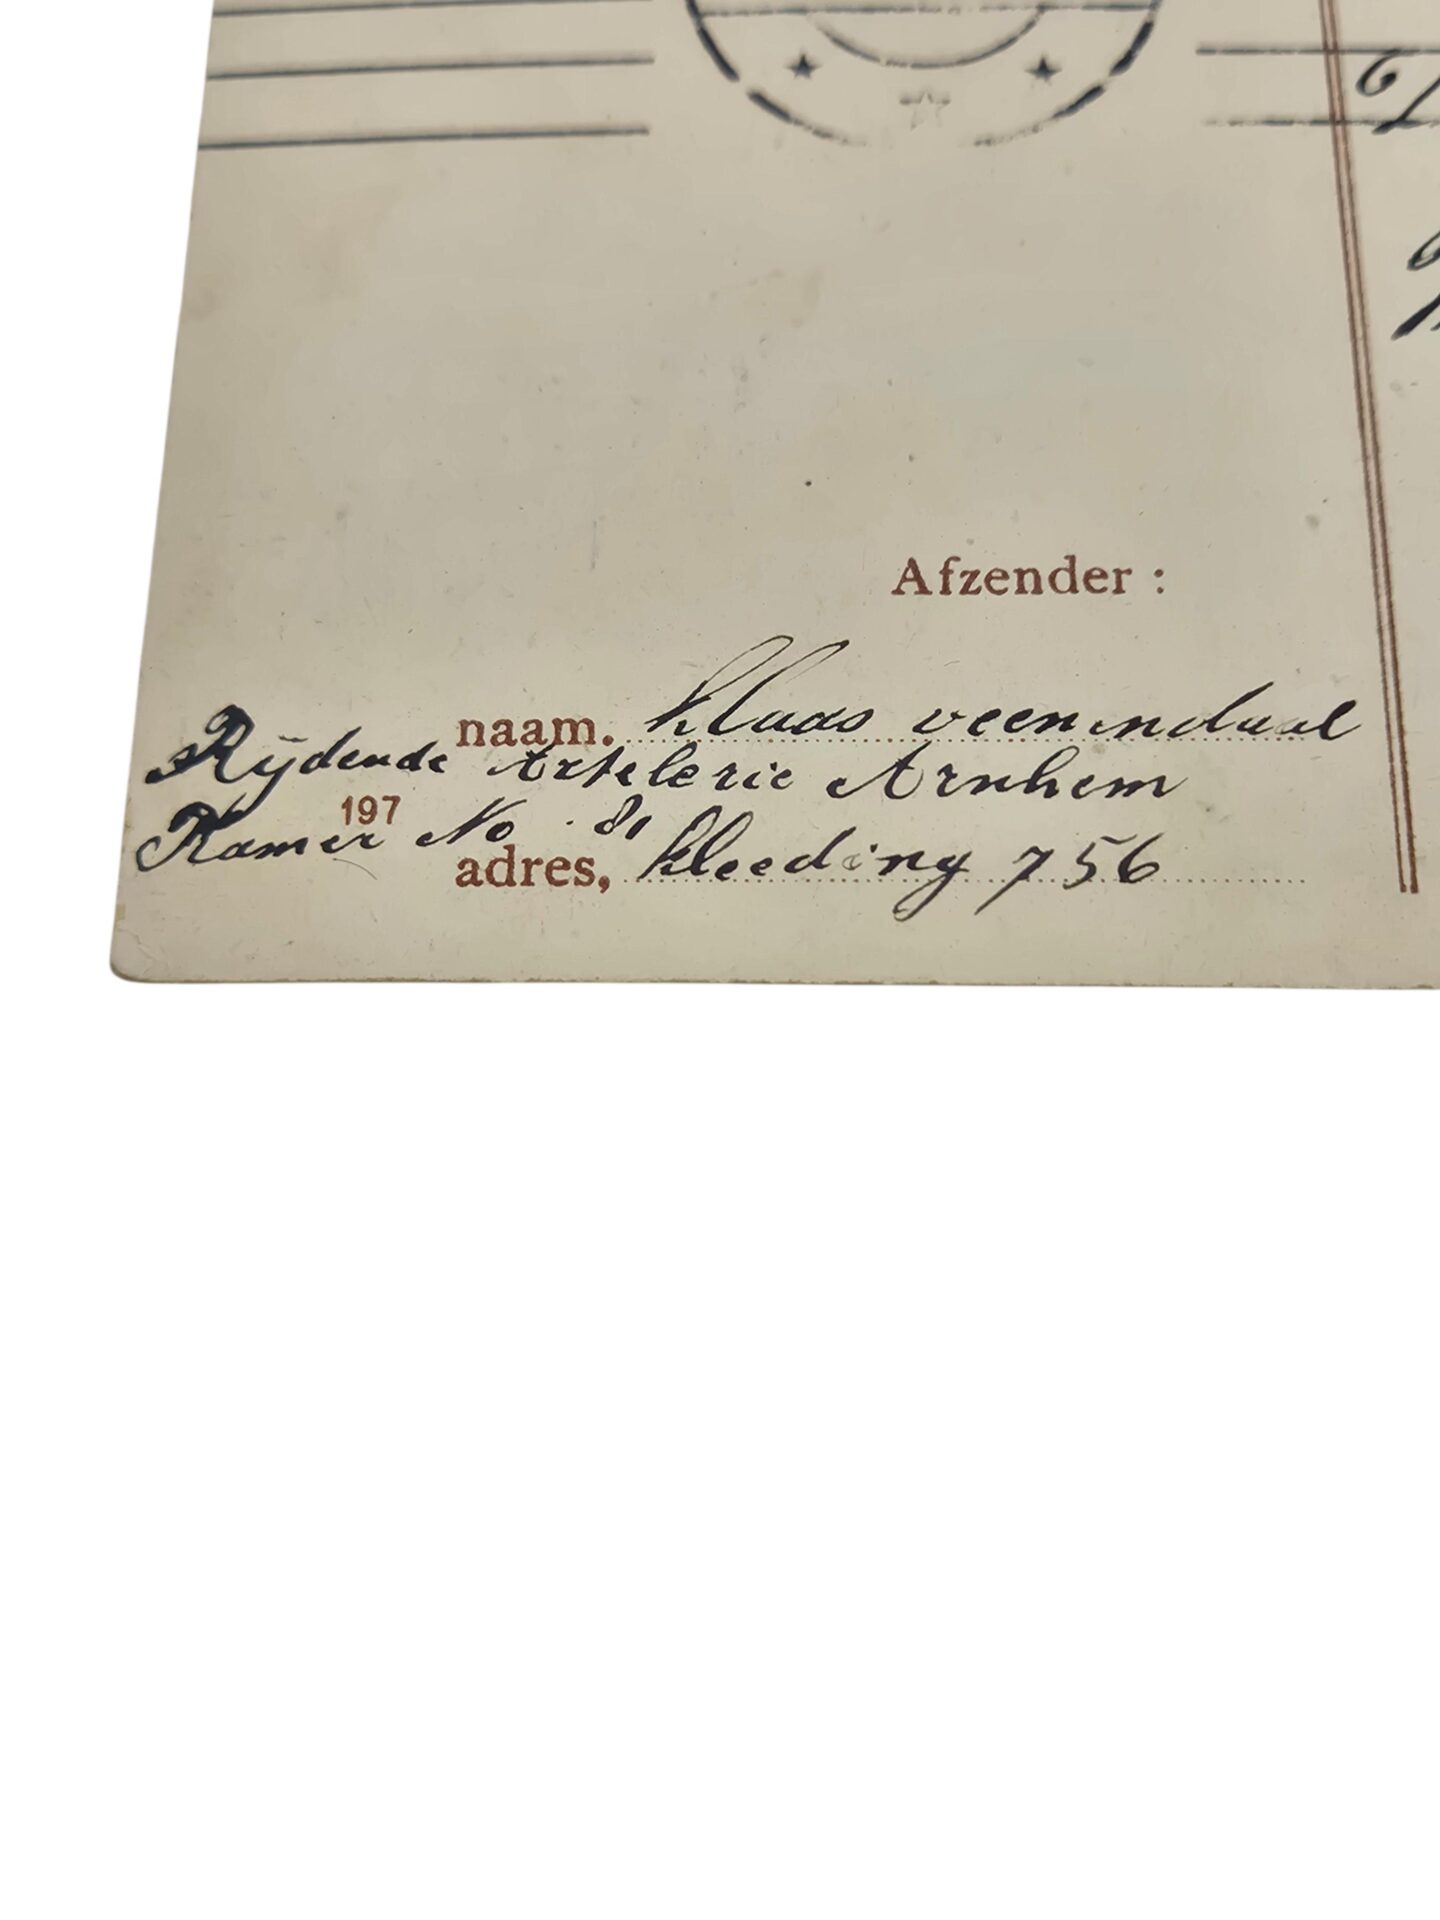 Afzender :
naam. klaas veenendaal
Rijdende Artelerie Arnhem
197
Kamer No. 81
adres, kleeding 756